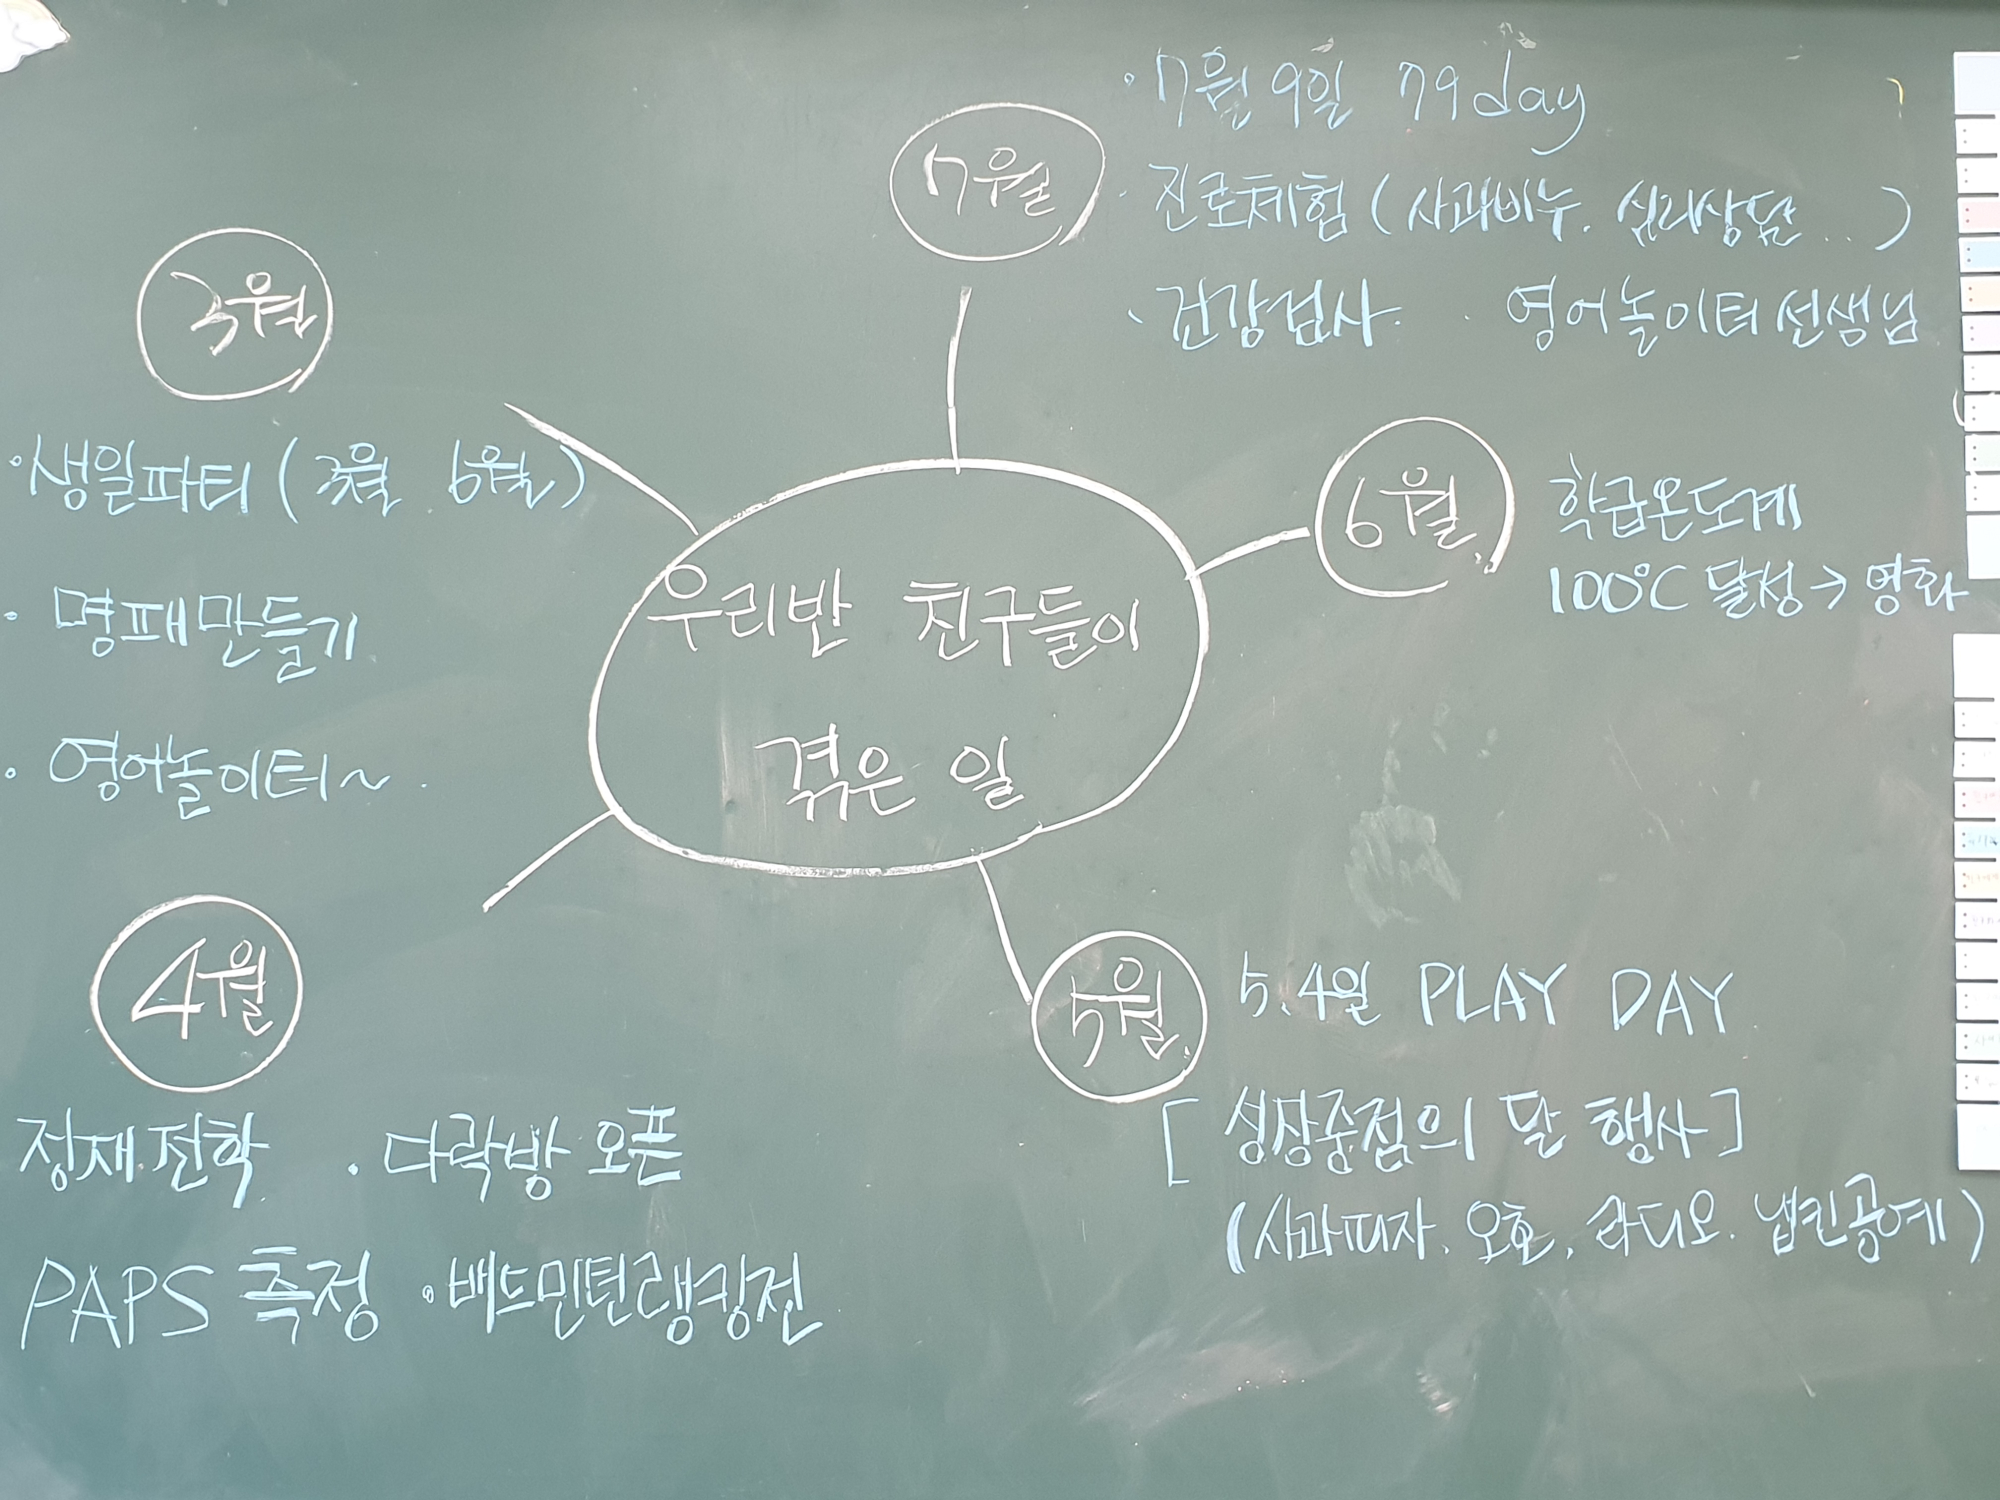 우리반 친구들이
겪은 일
3월
·생일파티 (3월 6월)
·명패만들기
·영어놀이터~
4월
정재전학 ·다락방 오픈
PAPS 측정 ·배드민턴랭킹전
5월.
5.4일 PLAY DAY
[성장중점의 달 행사]
(사과피자, 오호, 라디오. 냅킨공예)
6월.
학급온도계
100℃ 달성→영화
7월
·7월 9일 79day
·진로체험 (사과비누. 심리상담..)
·건강검사. ·영어놀이터선생님